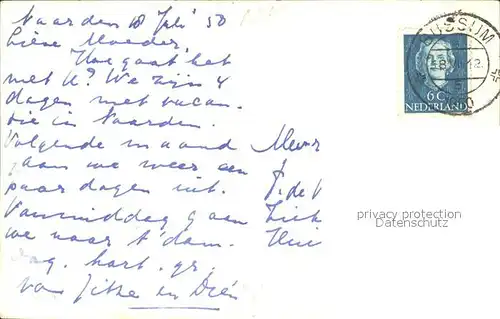 Naarden 18 Juli '50
Lieve Moeder,
Hoe gaat het
met U? We zijn 4
dagen met vacan-
tie in Naarden.
Volgende maand
gaan we weer een
paar dagen uit.
Vanmiddag gaan
we naar A'dam.
Dag. hart. gr.
van Jitske en Dien
Mevr
J. de V
Ziek
Hui
BUSSUM
6 C
NEDERLAND
privacy protection
Datenschutz